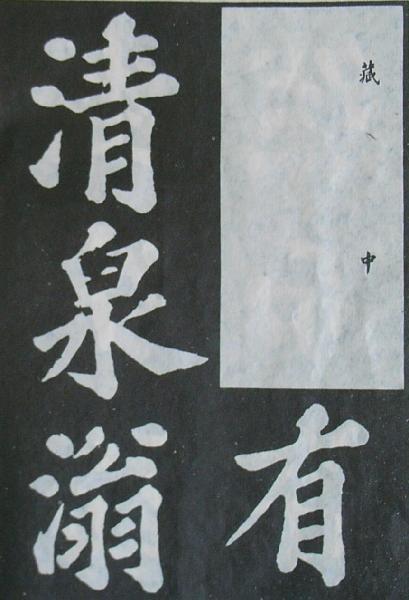 藏中有
清泉滃